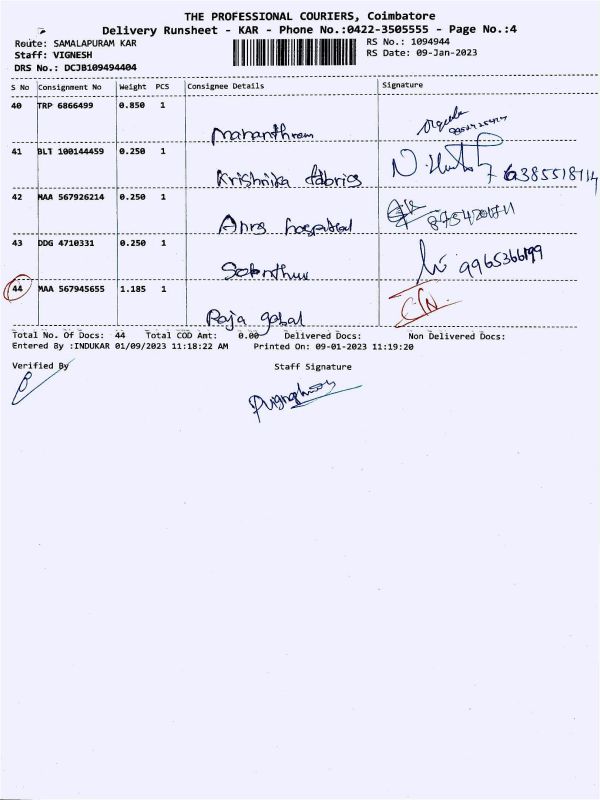 THE PROFESSIONAL COURIERS, Coimbatore
Delivery Runsheet - KAR - Phone No.:0422-3505555 - Page No.:4
Route: SAMALAPURAM KAR RS No.: 1094944
Staff: VIGNESH RS Date: 09-Jan-2023
DRS No.: DCJB109494404
S No Consignment No Weight PCS Consignee Details Signature
40 TRP 6866499 0.850 1
41 BLT 100144459 0.250 1
Krishnika fabrics 6385518114
42 MAA 567926214 0.250 1
hospital
43 DDG 4710331 0.250 1
9965366199
44 MAA 567945655 1.185 1
Raja gobal
Total No. Of Docs: 44 Total COD Amt: 0.00 Delivered Docs: Non Delivered Docs:
Entered By :INDUKAR 01/09/2023 11:18:22 AM Printed On: 09-01-2023 11:19:20
Verified By Staff Signature